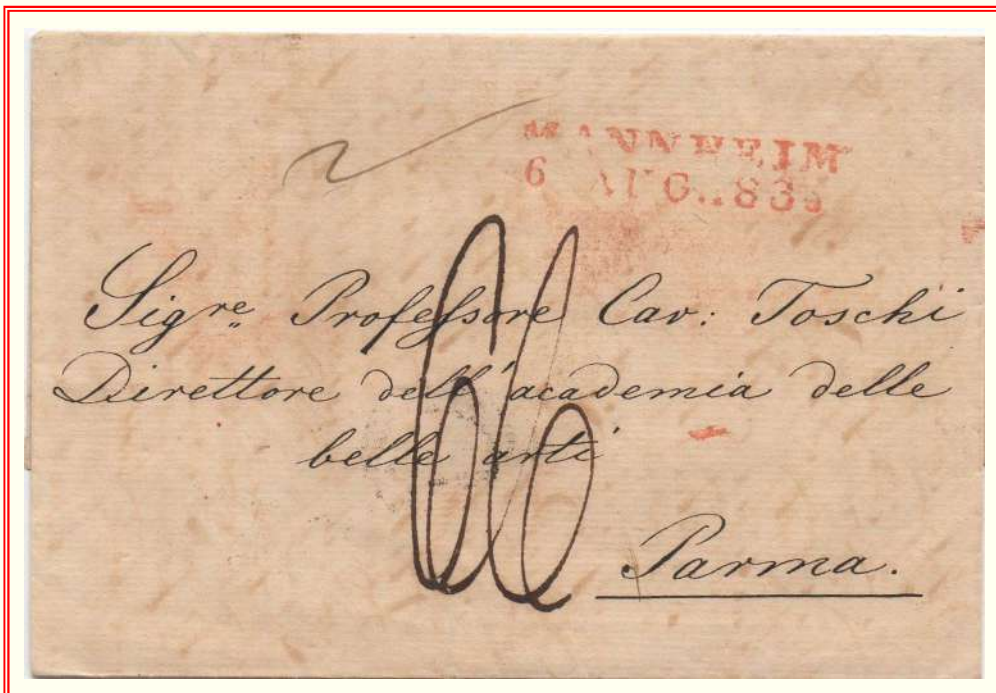 MANNHEIM
6 AUG. 83
Sig.re Professore Cav: Toschi
Direttore dell'academia delle
belle arti
66
Parma.